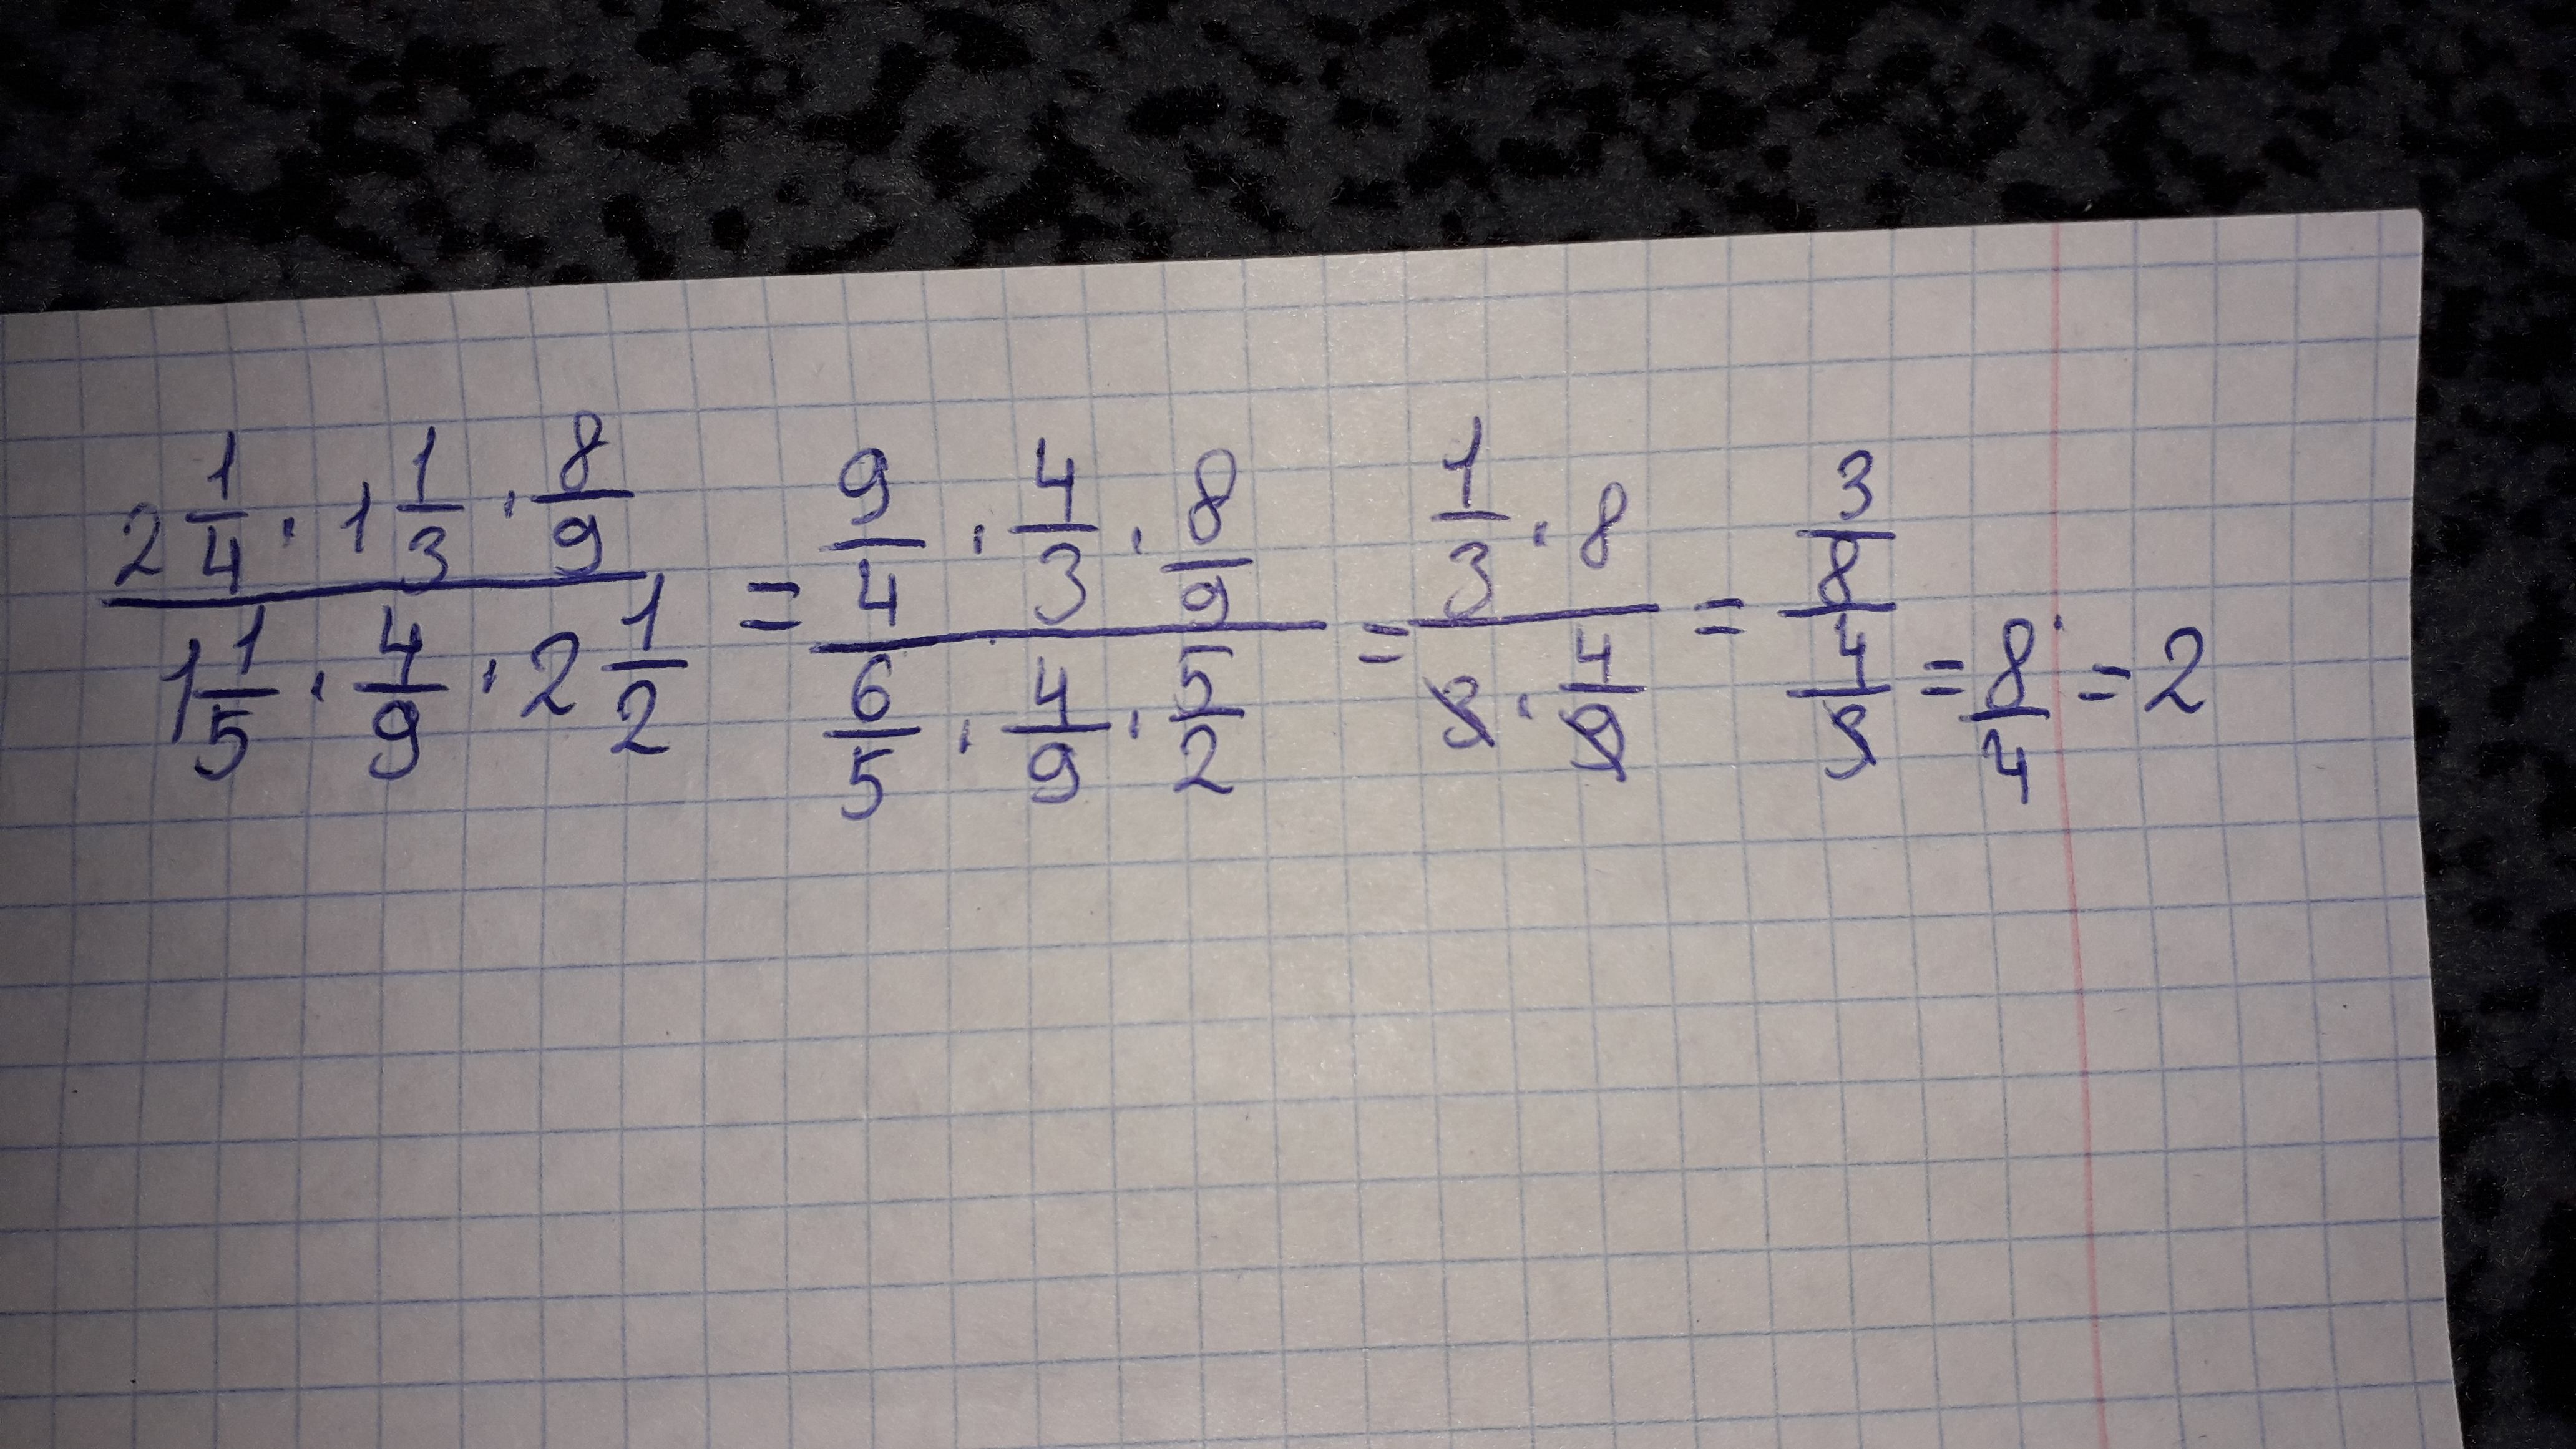 (2 1/4 · 1 1/3 · 8/9) / (1 1/5 · 4/9 · 2 1/2) = (9/4 · 4/3 · 8/9) / (6/5 · 4/9 · 5/2) = (1/3 · 8) / (3 · 4/9) = (3/8) / (4/3) = 8/4 = 2